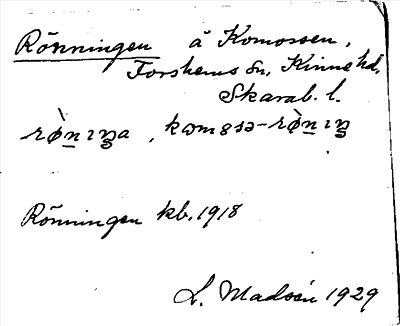 Rönningen å Komossen,
Forshems sn, Kinne hd,
Skarab. l.
Rönningen kb. 1918
L. Madsén 1929